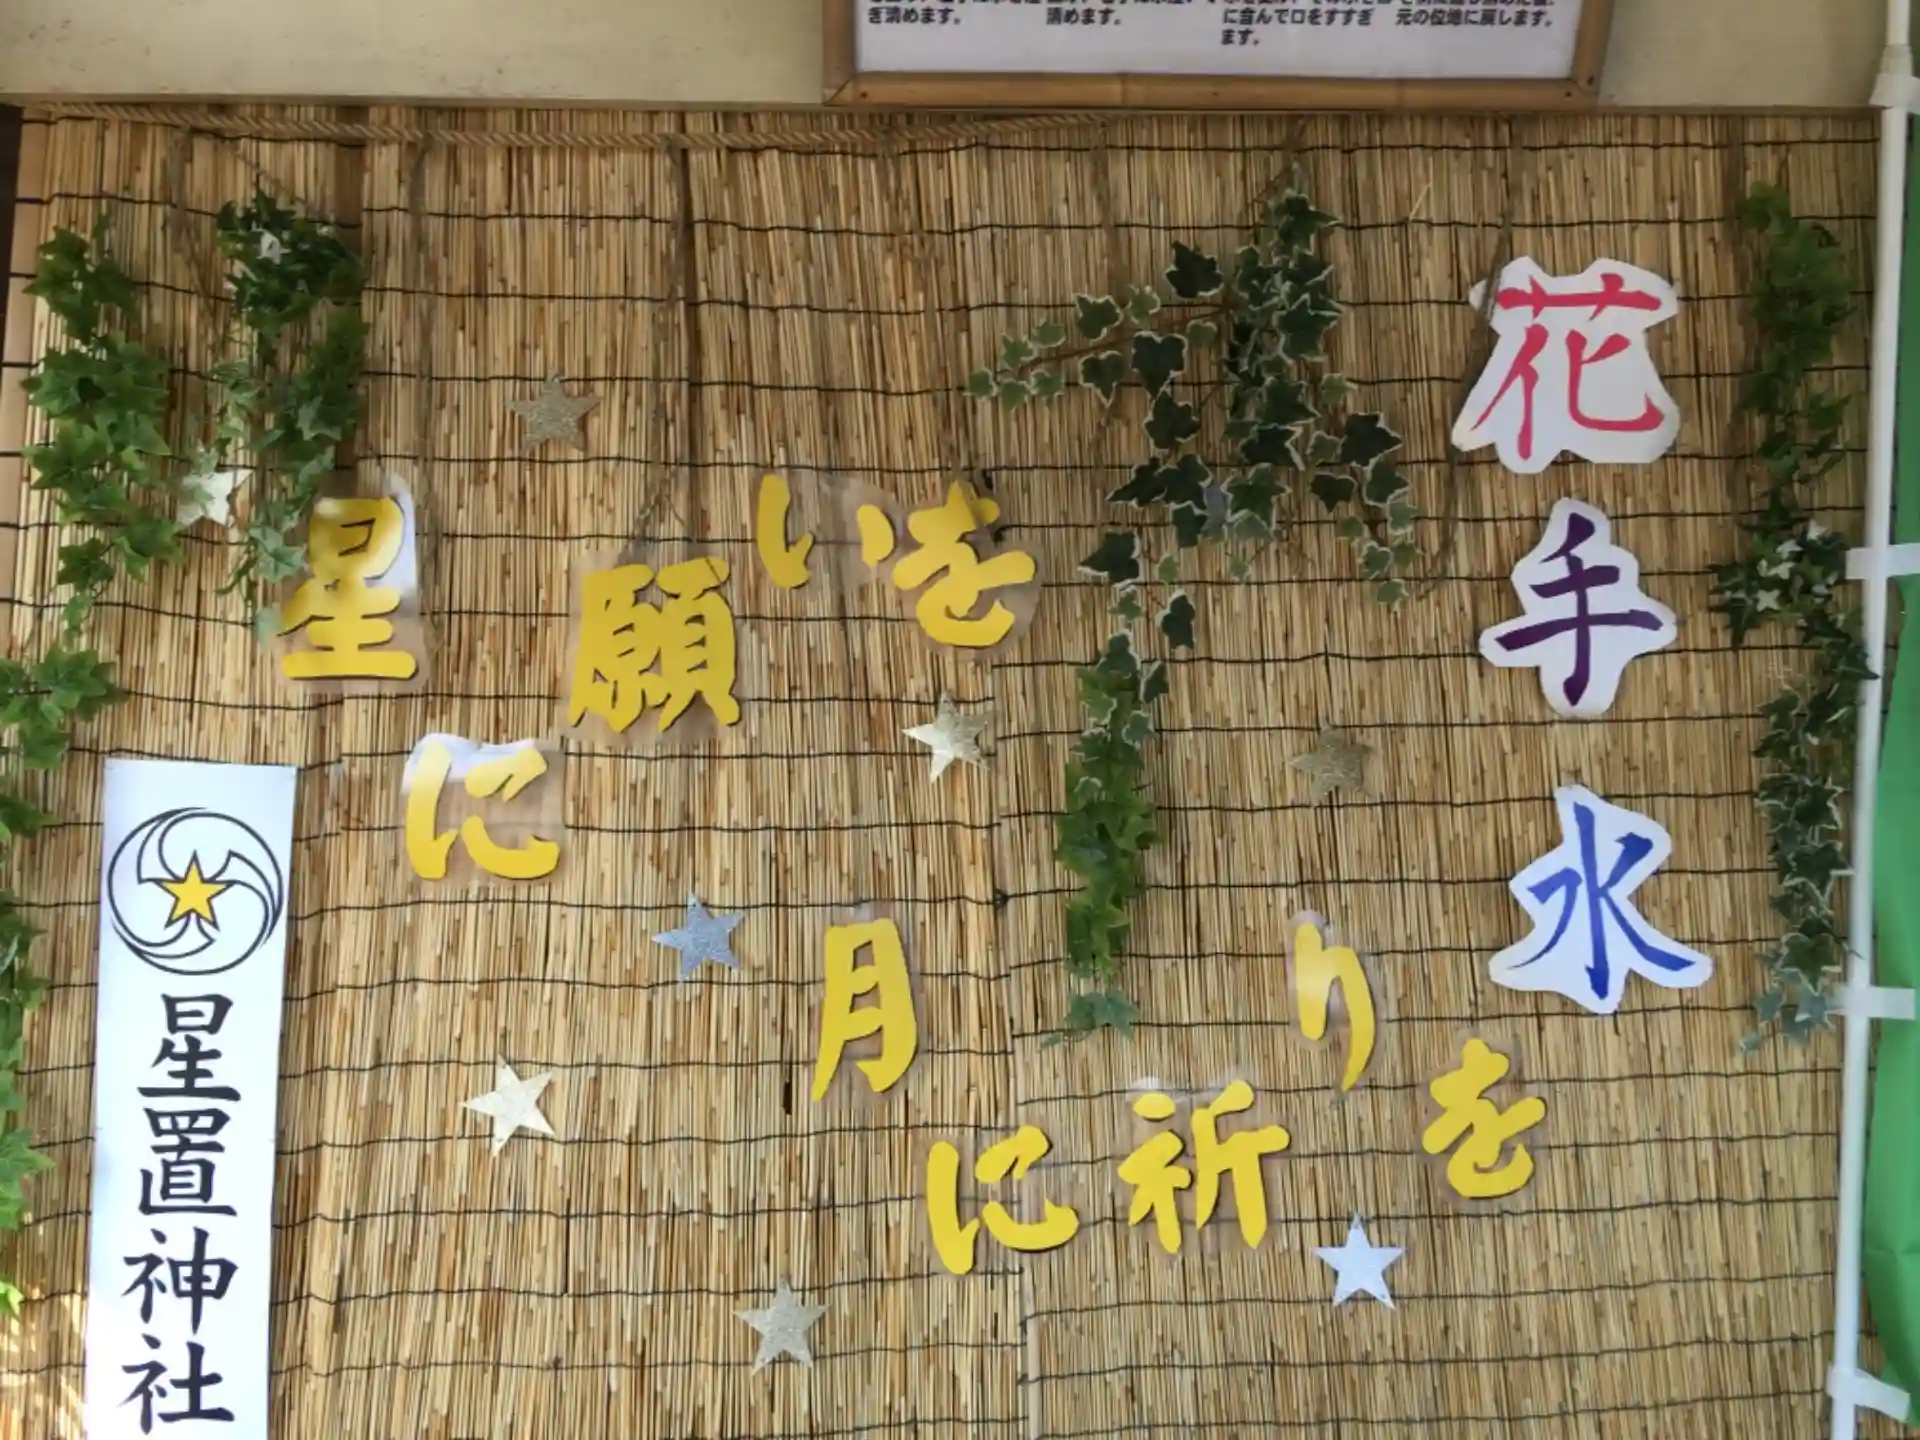 ぎ清めます。
清めます。
に含んで口をすすぎ
ます。
元の位地に戻します。
花手水
星に願いを
月に祈りを
星置神社